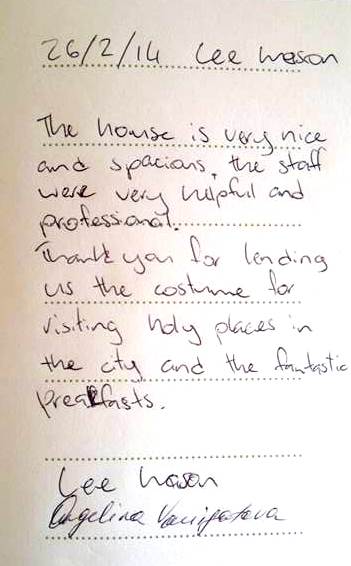 26/2/14 Lee Mason
The house is very nice
and spacious, the staff
were very helpful and
professional.
Thank you for lending
us the costume for
visiting holy places in
the city and the fantastic
preakfasts.
Lee Mason
Angelina